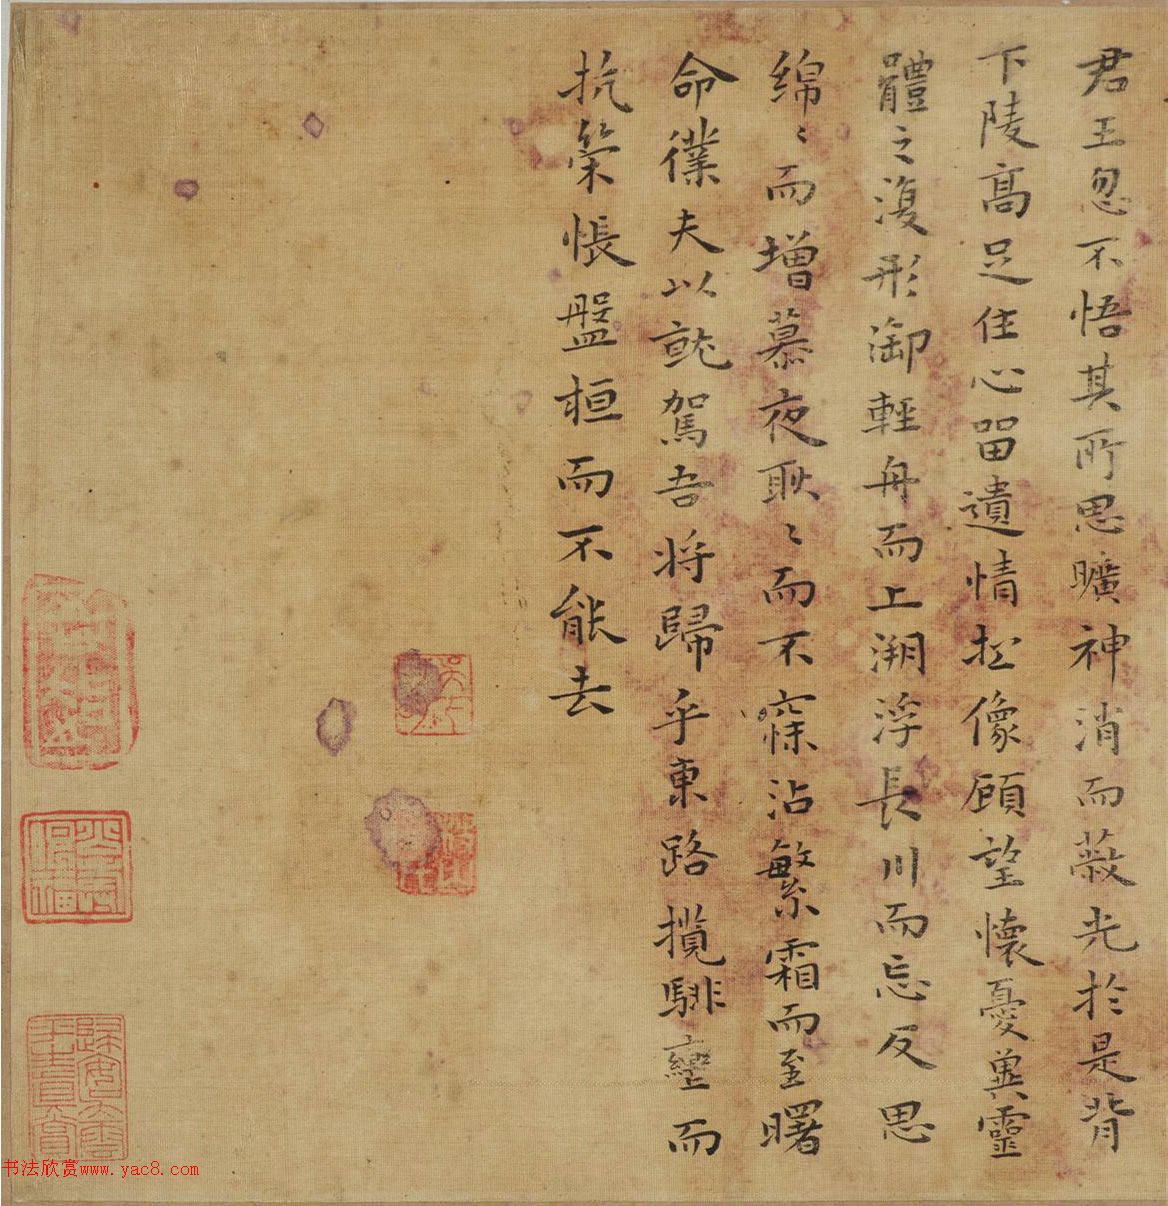 君王忽不悟其所思曠神消而蔽光於是背
下陵高足住心留遺情想像顧望懷憂冀靈
體之復形御輕舟而上溯浮長川而忘反思
綿〻而增慕夜耿〻而不寐沾繁霜而至曙
命僕夫以就駕吾將歸乎東路攬騑轡而
抗策悵盤桓而不能去
书法欣赏www.yac8.com